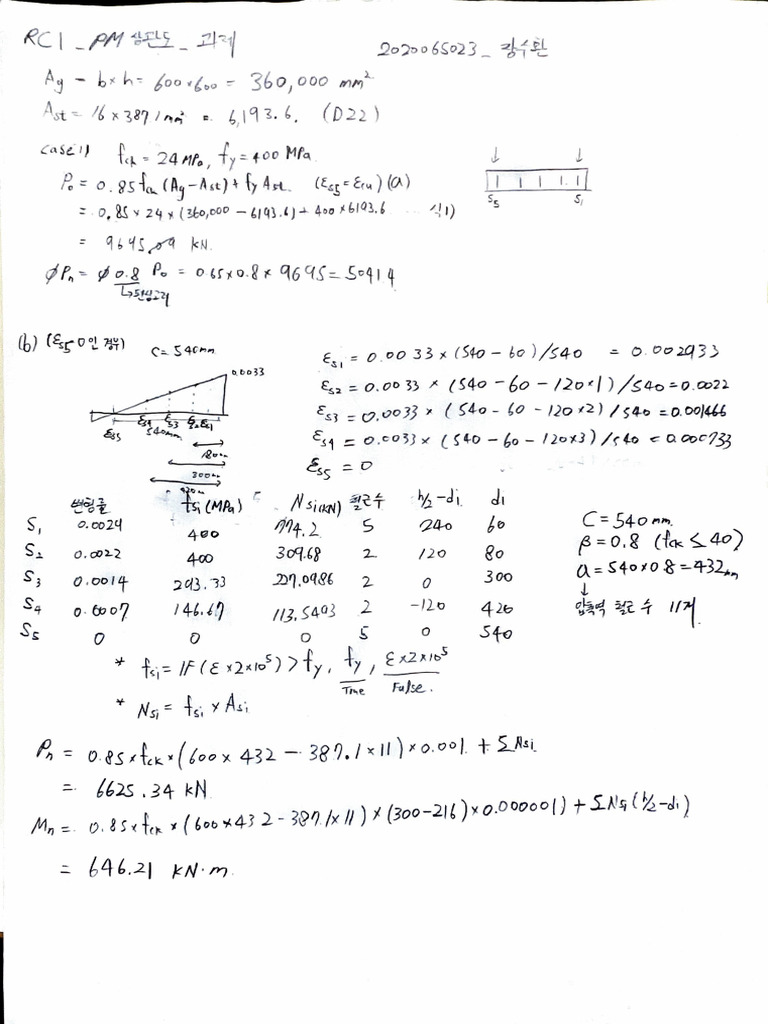 RC1 _ PM 상관도 _ 과제
2020065023 _ 장수환
Ag = b×h = 600×600 = 360,000 mm²
Ast = 16 × 387.1mm² = 6,193.6. (D22)
case 1) fck = 24MPa, fy = 400 MPa.
P₀ = 0.85fck (Ag - Ast) + fy Ast. (εs5 = εcu) (a)
= 0.85 × 24 × (360,000 - 6193.6) + 400 × 6193.6 ... 식1)
= 9695.09 kN.
ØPn = Ø 0.8 P₀ = 0.65×0.8 × 9695 = 5041.4
S5 S1
(b) (εs5 0인 경우) C = 540mm
0.0033
εs5 εs4 εs3 εs2 εs1
540mm
180mm
300mm
420mm
εs1 = 0.0033 × (540 - 60) / 540 = 0.002933
εs2 = 0.0033 × (540 - 60 - 120×1) / 540 = 0.0022
εs3 = 0.0033 × (540 - 60 - 120×2) / 540 = 0.001466
εs4 = 0.0033 × (540 - 60 - 120×3) / 540 = 0.000733
εs5 = 0
변형률 fsi (MPa) Nsi (kN) 철근수 h/2 - di di
S1 0.0029 400 774.2 5 240 60
S2 0.0022 400 309.68 2 120 80
S3 0.0014 293.33 227.0986 2 0 300
S4 0.0007 146.67 113.5493 2 -120 420
S5 0 0 0 5 0 540
C = 540 mm.
β = 0.8 (fck ≤ 40)
a = 540×0.8 = 432mm
↓
압축역 철근 수 11개
* fsi = IF (ε × 2×10⁵) > fy, fy, ε×2×10⁵
True False.
* Nsi = fsi × Asi
Pn = 0.85 × fck × (600 × 432 - 387.1 × 11) × 0.001 + ΣNsi
= 6625.34 kN
Mn = 0.85 × fck × (600 × 432 - 387.1 × 11) × (300 - 216) × 0.000001) + ΣNsi (h/2 - di)
= 646.21 kN·m.